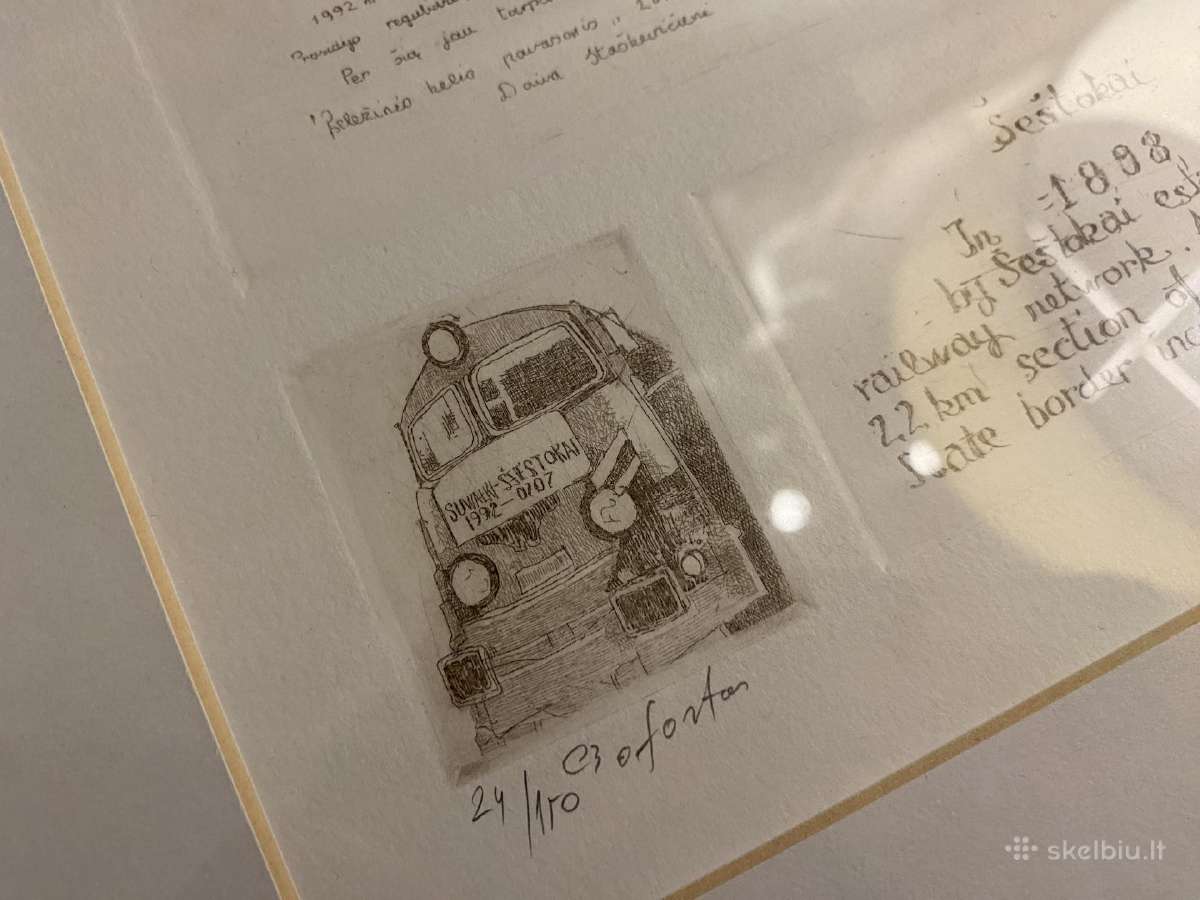 1992 m
regular
Per šią jau
Geležinio kelio pavasaris
Daiva Staškevičienė
Šeštokai
-1898,
In
by Šeštokai
railway network.
22 km section of
State border
SUVALKI-ŠEŠTOKAI
1992-0707
24/150 C3 ofortas
skelbiu.lt